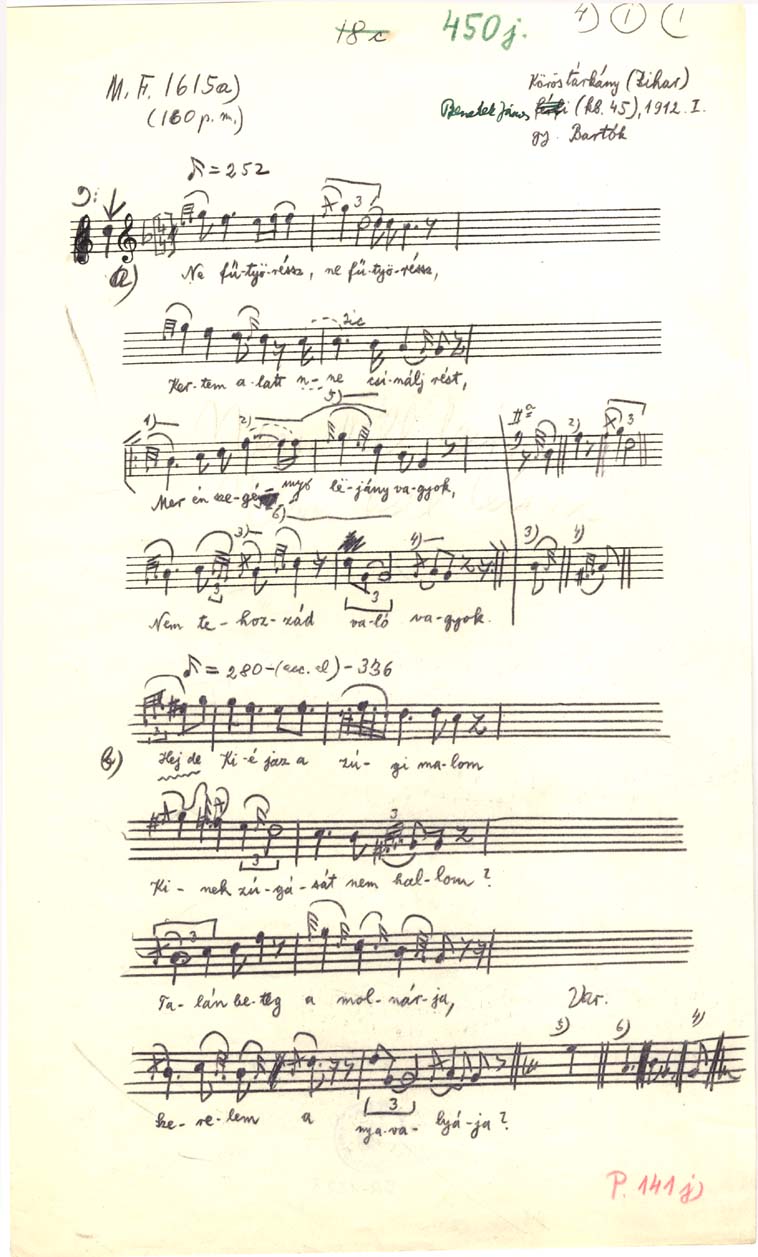 18c 450j. 4) 1 (1
M. F. 1615a) Köröstárkány (Bihar)
(160 p. m.) Benedek János (kb. 45), 1912. I.
gy. Bartók
= 252
a) Ne fü-työ-réssz, ne fü-työ-réssz,
sic
Ker-tem a-latt n-ne csi-nálj rést,
5)
1) 2) IIª 2) 3
Mer én sze-gény lë-jány va-gyok,
6)
3) 4) 3) 4)
3 3
Nem te-hoz-zád va-ló va-gyok.
= 280-(acc. al)-336
3
b) Hej de Ki-é jaz a zú-gi ma-lom
3
3
Ki-nek zú-gá-sát nem hal-lom?
3
Ta-lán be-teg a mol-nár-ja, Var.
5) 6) 4)
3
Sze-re-lem a nya-va-lyá-ja?
P. 141 j)